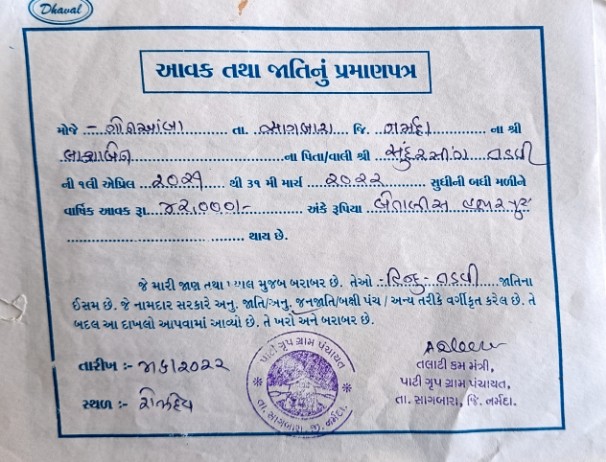 Dhaval
આવક તથા જાતિનું પ્રમાણપત્ર
મોજે - ............ તા. સાગબારા જિ. નર્મદા ના શ્રી
............ ના પિતા/વાલી શ્રી સુંદરસીંગ તડવી
ની ૧લી એપ્રિલ ૨૦૨૧ થી ૩૧ મી માર્ચ ૨૦૨૨ સુધીની બધી મળીને
વાર્ષિક આવક રૂા. ૪૨,૦૦૦/- અંકે રૂપિયા બેતાલીસ હજાર પુરા
............ થાય છે.
જે મારી જાણ તથા ખ્યાલ મુજબ બરાબર છે. તેઓ હિન્દુ - તડવી જાતિના
ઈસમ છે. જે નામદાર સરકારે અનુ. જાતિ/અનુ. જનજાતિ/બક્ષી પંચ / અન્ય તરીકે વર્ગીકૃત કરેલ છે. તે
બદલ આ દાખલો આપવામાં આવ્યો છે. તે ખરો અને બરાબર છે.
તારીખ :- /૨૦૨૨
સ્થળ :-
પાટી ગૃપ ગ્રામ પંચાયત
તા. સાગબારા, જી. નર્મદા.
તલાટી કમ મંત્રી,
પાટી ગૃપ ગ્રામ પંચાયત,
તા. સાગબારા, જિ. નર્મદા.